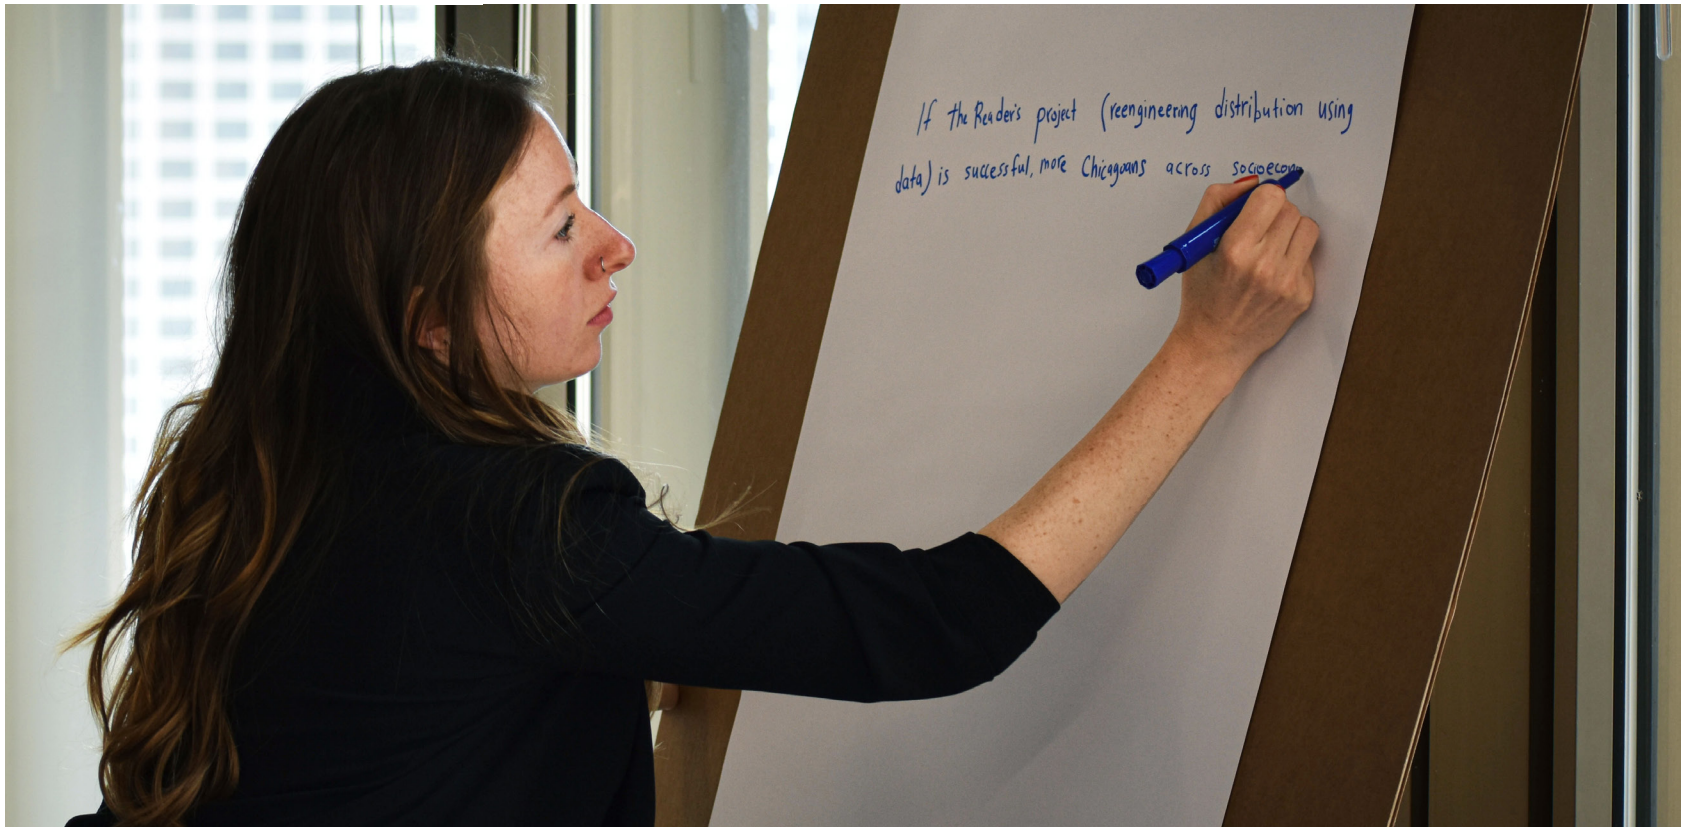 If the Reader's project (reengineering distribution using
data) is successful, more Chicagoans across socioecon